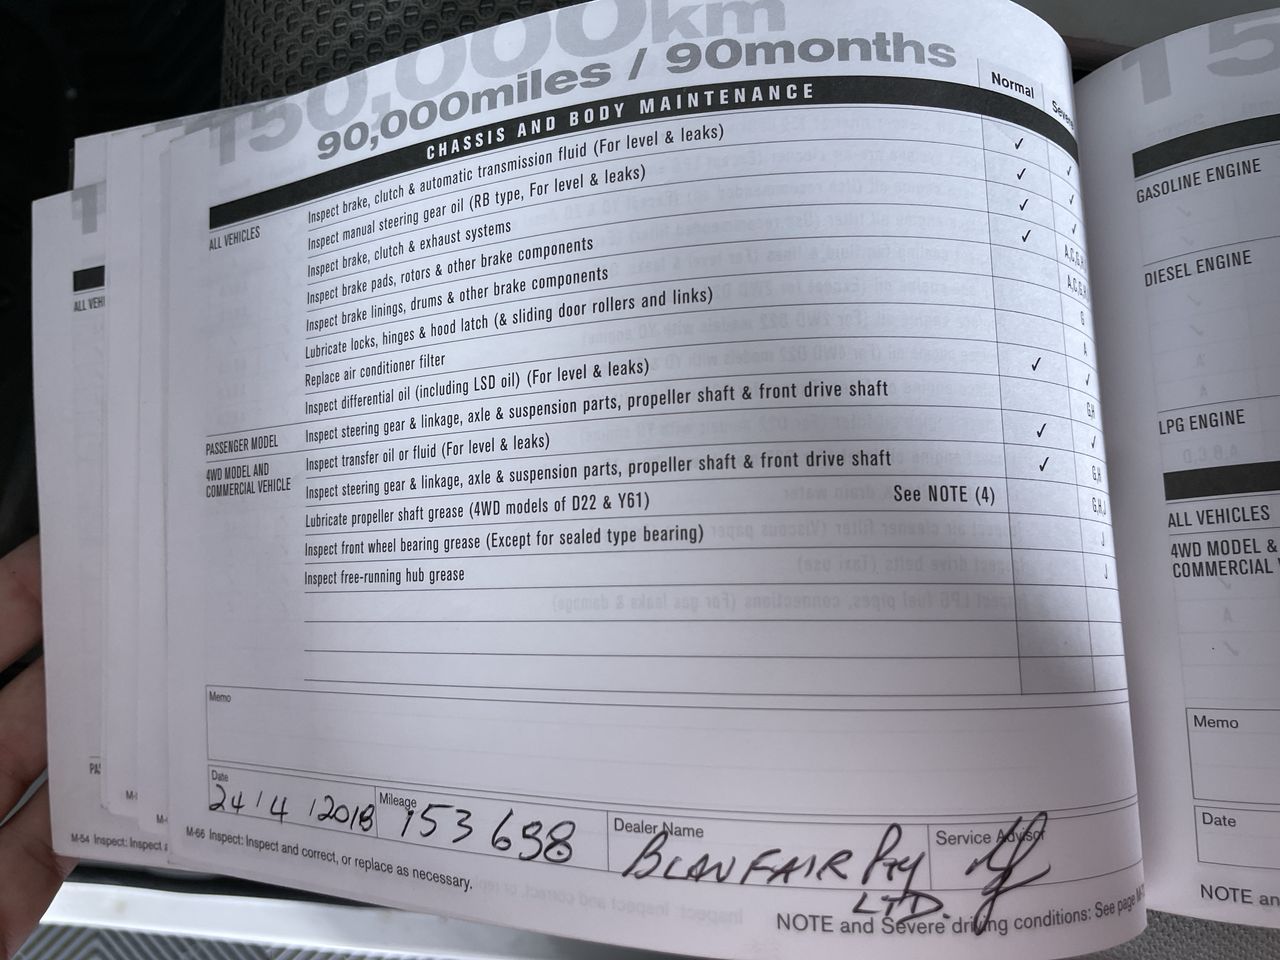 150,000km
90,000miles / 90months
Normal
CHASSIS AND BODY MAINTENANCE
ALL VEHICLES
Inspect brake, clutch & automatic transmission fluid (For level & leaks) ✓ ✓
Inspect manual steering gear oil (RB type, For level & leaks) ✓ ✓
Inspect brake, clutch & exhaust systems ✓ ✓
Inspect brake pads, rotors & other brake components ✓
Inspect brake linings, drums & other brake components
Lubricate locks, hinges & hood latch (& sliding door rollers and links) G
Replace air conditioner filter A
Inspect differential oil (including LSD oil) (For level & leaks) ✓ ✓
PASSENGER MODEL
Inspect steering gear & linkage, axle & suspension parts, propeller shaft & front drive shaft G,H
4WD MODEL AND
COMMERCIAL VEHICLE
Inspect transfer oil or fluid (For level & leaks) ✓ ✓
Inspect steering gear & linkage, axle & suspension parts, propeller shaft & front drive shaft ✓ G,H
Lubricate propeller shaft grease (4WD models of D22 & Y61) See NOTE (4) G,H,J
Inspect front wheel bearing grease (Except for sealed type bearing) J
Inspect free-running hub grease J
Memo
Date
24/4/2018
Mileage
153698
Dealer Name
BLANFAIR Pty
LTD.
Service Advisor
M-66 Inspect: Inspect and correct, or replace as necessary.
NOTE and Severe driving conditions: See page
ALL VEHI
M-54 Inspect: Inspect
15
GASOLINE ENGINE
DIESEL ENGINE
LPG ENGINE
ALL VEHICLES
4WD MODEL &
COMMERCIAL
Memo
Date
NOTE an